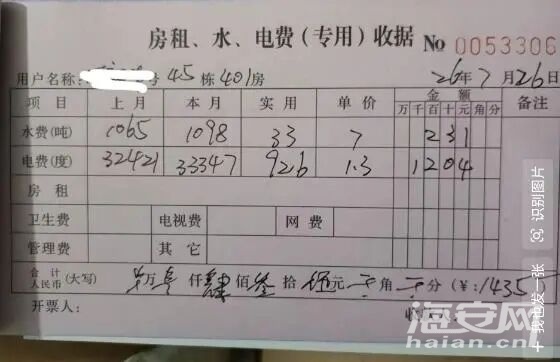 房租、水、电费(专用)收据 No 0053306
用户名称: 号 45 栋 401 房 26年7月26日
项目 上月 本月 实用 单价 金额 备注
万 千 百 十 元 角 分
水费(吨) 1065 1098 33 7 231
电费(度) 32421 33347 926 1.3 1204
房租
卫生费 电视费 网费
管理费 其它
合计人民币(大写) 万 仟 肆 佰 叁 拾 伍 元 角 分 (¥:1435
开票人: 收
识别图片
+ 我也发一张
海安网
haian.com